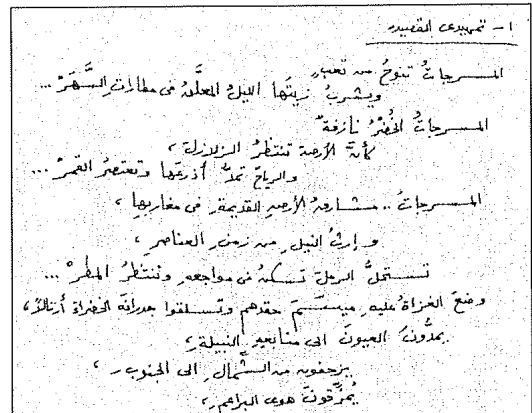 ١ - تمهيدى القصيدة
المسرجاتُ تنوحُ من تعبٍ
ويشربُ زيتَها الليلُ المعلَّقُ فى مطاراتِ السَّهَرْ ...
المسرجاتُ الخُضْرُ نازفةٌ
كأنَّ الأرضَ تنتظرُ الزلازلَ ،
والرياحَ تمدُّ أذرعَها وتعتصرُ القمرْ ...
المسرجاتُ .. مشارقُ الأرضِ القديمةِ فى مغاربِها ،
وإرثُ النيلِ من زمنِ العناصرِ ،
الرملَ تسكنُ فى مواجعهِ وتنتظرُ المطرْ ...
وضعَ الغزاةُ عليهِ ميسَمَ حقدهم وتسلقوا جدرانَه الخضراءَ أرتالاً ،
يمدُّونَ العيونَ الى منابعهِ النبيلةِ ،
يزحفونَ من الشَّمالِ الى الجنوبِ ،
يُمزِّقونَ هوى البراعمِ ،